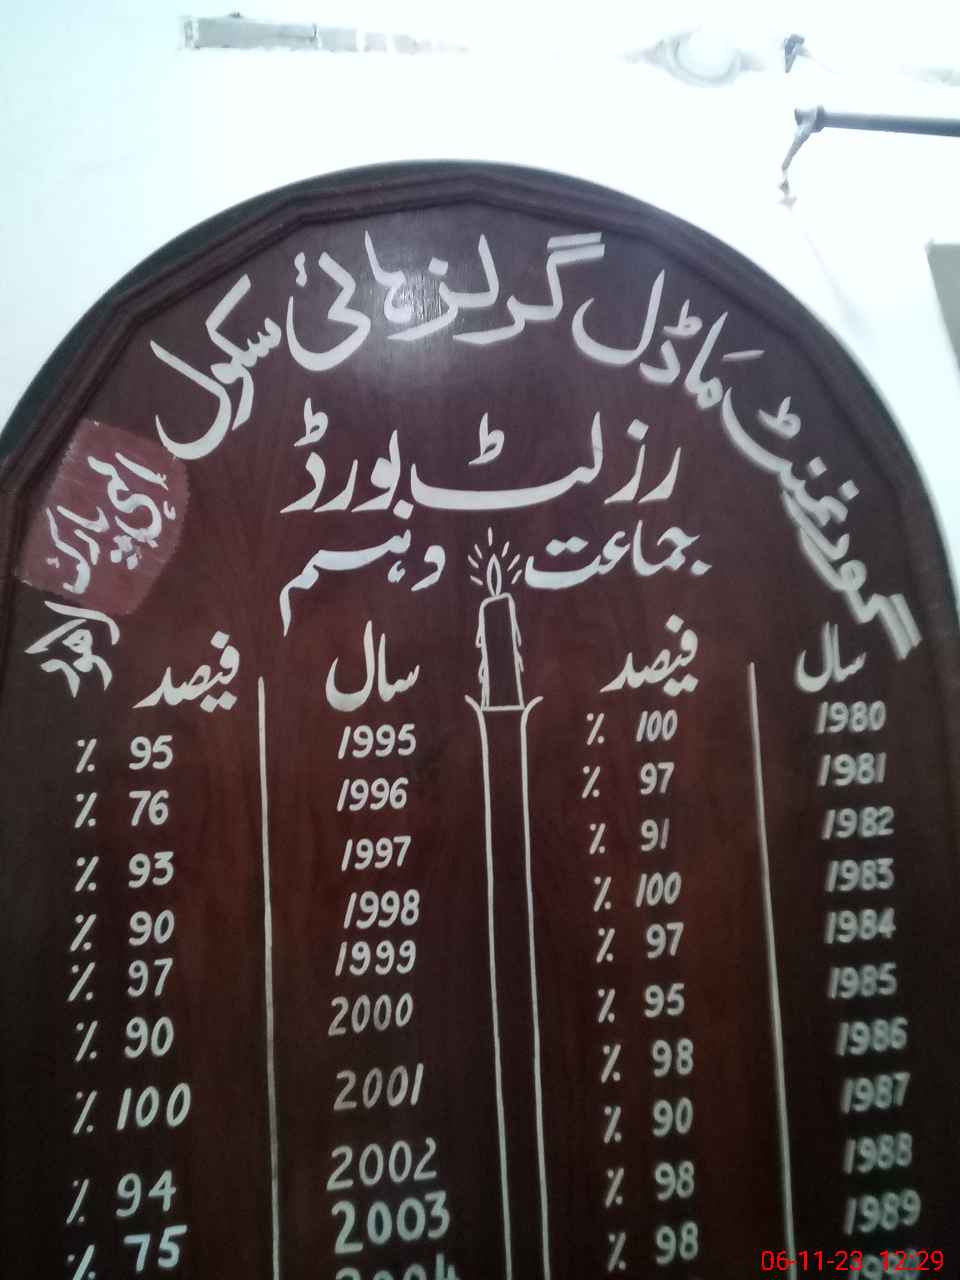 گورنمنٹ ماڈل گرلز ہائی سکول پارک لاہور
رزلٹ بورڈ
جماعت دہم
سال فیصد سال فیصد
1980 100 ٪ 1995 95 ٪
1981 97 ٪ 1996 76 ٪
1982 91 ٪ 1997 93 ٪
1983 100 ٪ 1998 90 ٪
1984 97 ٪ 1999 97 ٪
1985 95 ٪ 2000 90 ٪
1986 98 ٪ 2001 100 ٪
1987 90 ٪ 2002 94 ٪
1988 98 ٪ 2003 75 ٪
1989 98 ٪ 2004
06-11-23 12:29